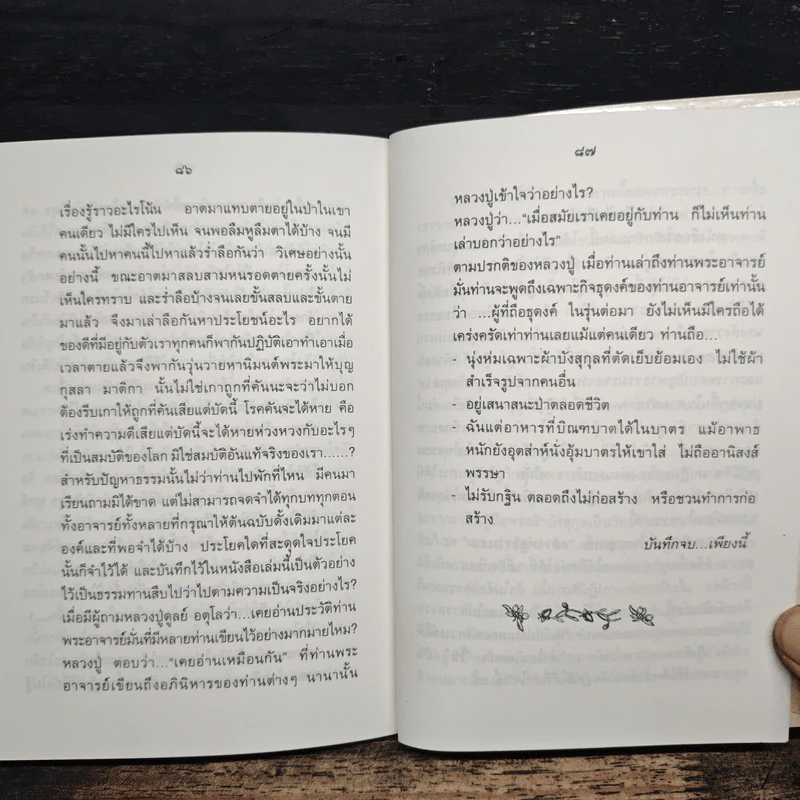 ๘๖
เรื่องรู้ราวอะไรโน้น อาตมาแทบตายอยู่ในป่าในเขา
คนเดียว ไม่มีใครไปเห็น จนพอลืมหูลืมตาได้บ้าง จนมี
คนนั้นไปหาคนนี้ไปหาแล้วร่ำลือกันว่า วิเศษอย่างนั้น
อย่างนี้ ขณะอาตมาสลบสามหนรอดตายครั้งนั้นไม่
เห็นใครทราบ และร่ำลือบ้างจนเลยขั้นสลบและขั้นตาย
มาแล้ว จึงมาเล่าลือกันหาประโยชน์อะไร อยากได้
ของดีที่มีอยู่กับตัวเราทุกคนก็พากันปฏิบัติเอาทำเอาเมื่อ
เวลาตายแล้วจึงพากันวุ่นวายหานิมนต์พระมาให้บุญ
กุสลา มาติกา นั้นไม่ใช่เกาถูกที่คันนะจะว่าไม่บอก
ต้องรีบเกาให้ถูกที่คันเสียแต่บัดนี้ โรคคันจะได้หาย คือ
เร่งทำความดีเสียแต่บัดนี้จะได้หายห่วงหวงกับอะไรๆ
ที่เป็นสมบัติของโลก มิใช่สมบัติอันแท้จริงของเรา......?
สำหรับปัญหาธรรมนั้นไม่ว่าท่านไปพักที่ไหน มีคนมา
เรียนถามมิได้ขาด แต่ไม่สามารถจดจำได้ทุกบททุกตอน
ทั้งอาจารย์ทั้งหลายที่กรุณาให้ต้นฉบับดั้งเดิมมาแต่ละ
องค์และที่พอจำได้บ้าง ประโยคใดที่สะดุดใจประโยค
นั้นก็จำไว้ได้ และบันทึกไว้ในหนังสือเล่มนี้เป็นตัวอย่าง
ไว้เป็นธรรมทานสืบไปว่าไปตามความเป็นจริงอย่างไร?
เมื่อมีผู้ถามหลวงปู่ดูลย์ อตุโลว่า...เคยอ่านประวัติท่าน
พระอาจารย์มั่นที่มีหลายท่านเขียนไว้อย่างมากมายไหม?
หลวงปู่ ตอบว่า..."เคยอ่านเหมือนกัน" ที่ท่านพระ
อาจารย์เขียนถึงอภินิหารของท่านต่างๆ นานานั้น
๘๗
หลวงปู่เข้าใจว่าอย่างไร?
หลวงปู่ว่า..."เมื่อสมัยเราเคยอยู่กับท่าน ก็ไม่เห็นท่าน
เล่าบอกว่าอย่างไร"
ตามปรกติของหลวงปู่ เมื่อท่านเล่าถึงท่านพระอาจารย์
มั่นท่านจะพูดถึงเฉพาะกิจธุดงค์ของท่านอาจารย์เท่านั้น
ว่า ...ผู้ที่ถือธุดงค์ ในรุ่นต่อมา ยังไม่เห็นมีใครถือได้
เคร่งครัดเท่าท่านเลยแม้แต่คนเดียว ท่านถือ...
- นุ่งห่มเฉพาะผ้าบังสุกุลที่ตัดเย็บย้อมเอง ไม่ใช้ผ้า
สำเร็จรูปจากคนอื่น
- อยู่เสนาสนะป่าตลอดชีวิต
- ฉันแต่อาหารที่บิณฑบาตได้ในบาตร แม้อาพาธ
หนักยังอุตส่าห์นั่งอุ้มบาตรให้เขาใส่ ไม่ถืออานิสงส์
พรรษา
- ไม่รับกฐิน ตลอดถึงไม่ก่อสร้าง หรือชวนทำการก่อ
สร้าง
บันทึกจบ...เพียงนี้